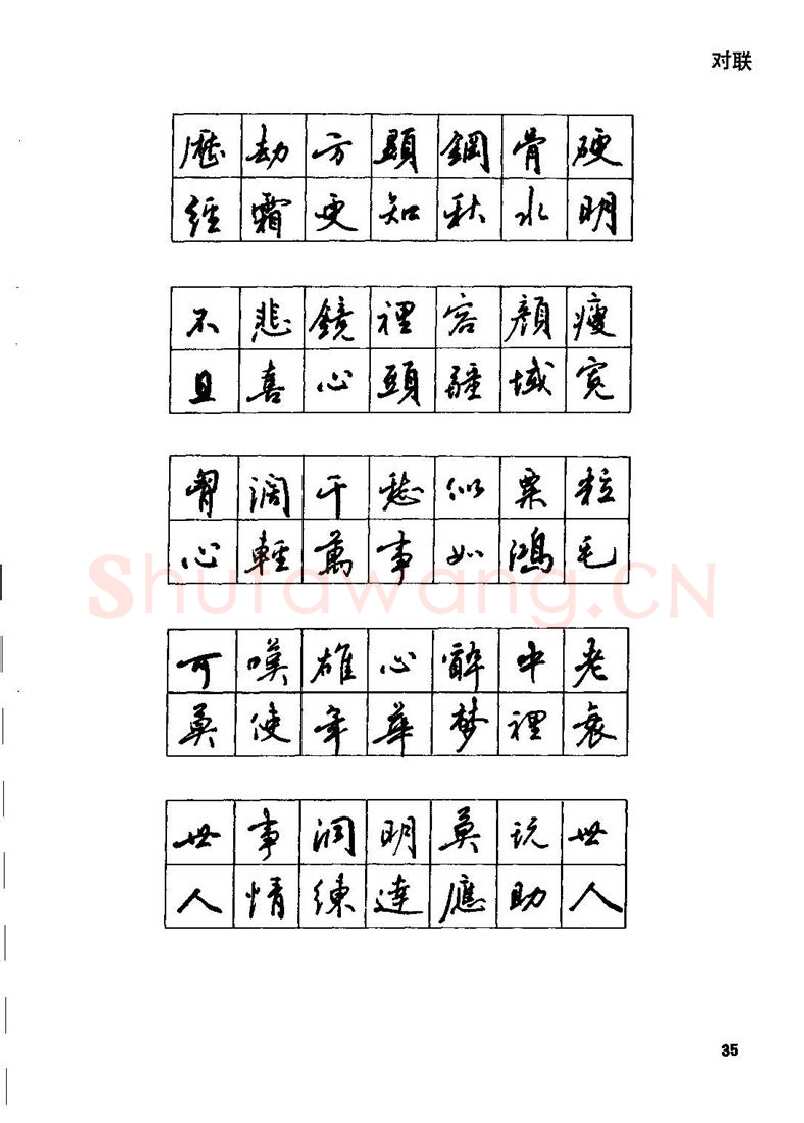 对联
歷劫方顯鋼骨硬
經霜更知秋水明
不悲鏡裡容顏瘦
且喜心頭疆域宽
胸阔千愁似粟粒
心輕萬事如鴻毛
可嘆雄心醉中老
莫使年華梦裡衰
世事洞明莫说世
人情練達應助人
Shufawang.CN
35